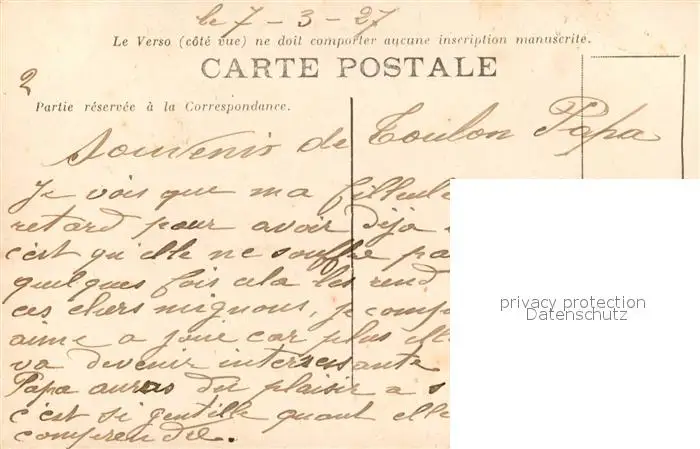 le 7 - 3 - 27
Le Verso (côté vue) ne doit comporter aucune inscription manuscrite.
CARTE POSTALE
2
Partie réservée à la Correspondance.
Souvenir de Toulon Papa
Je vois que ma filleule
retard pour avoir déja
c'est qu'elle ne souffre pa
quelques fois cela les rend
ces chers mignons, je comp
aime a joue car plus elle
va devenir interessante
Papa auras du plaisir a s
c'est si gentille quant elle
comprendre.
privacy protection
Datenschutz